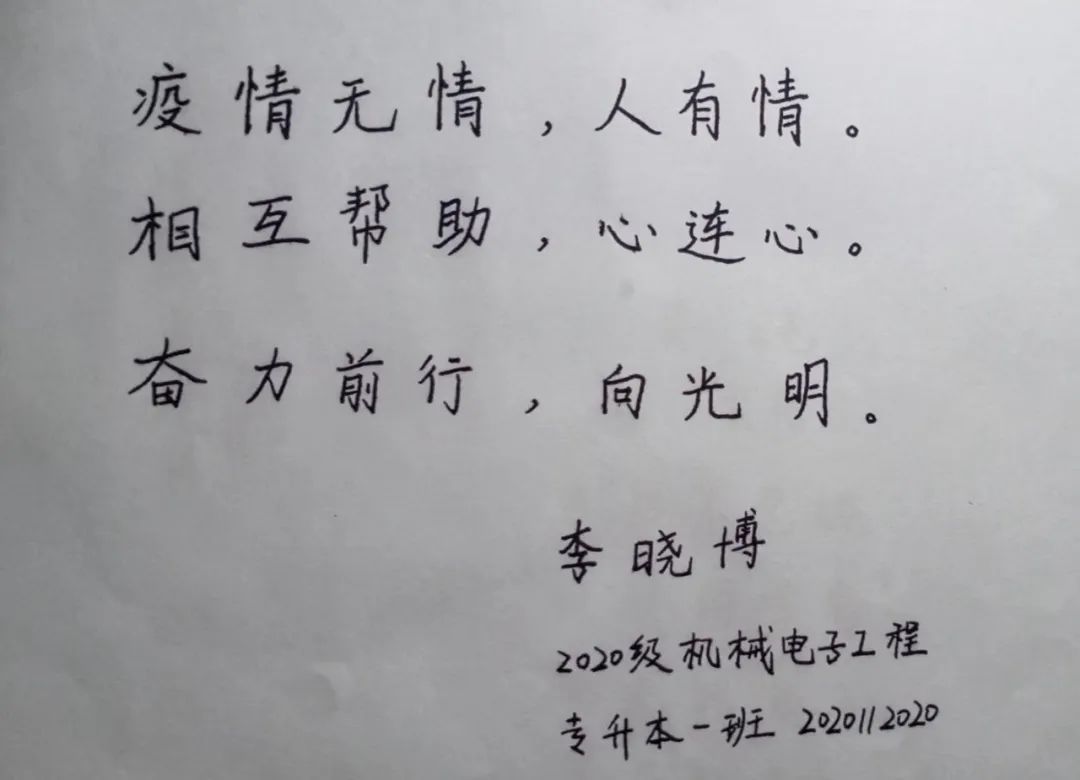 疫情无情，人有情。
相互帮助，心连心。
奋力前行，向光明。
李晓博
2020级机械电子工程
专升本一班 2020112020